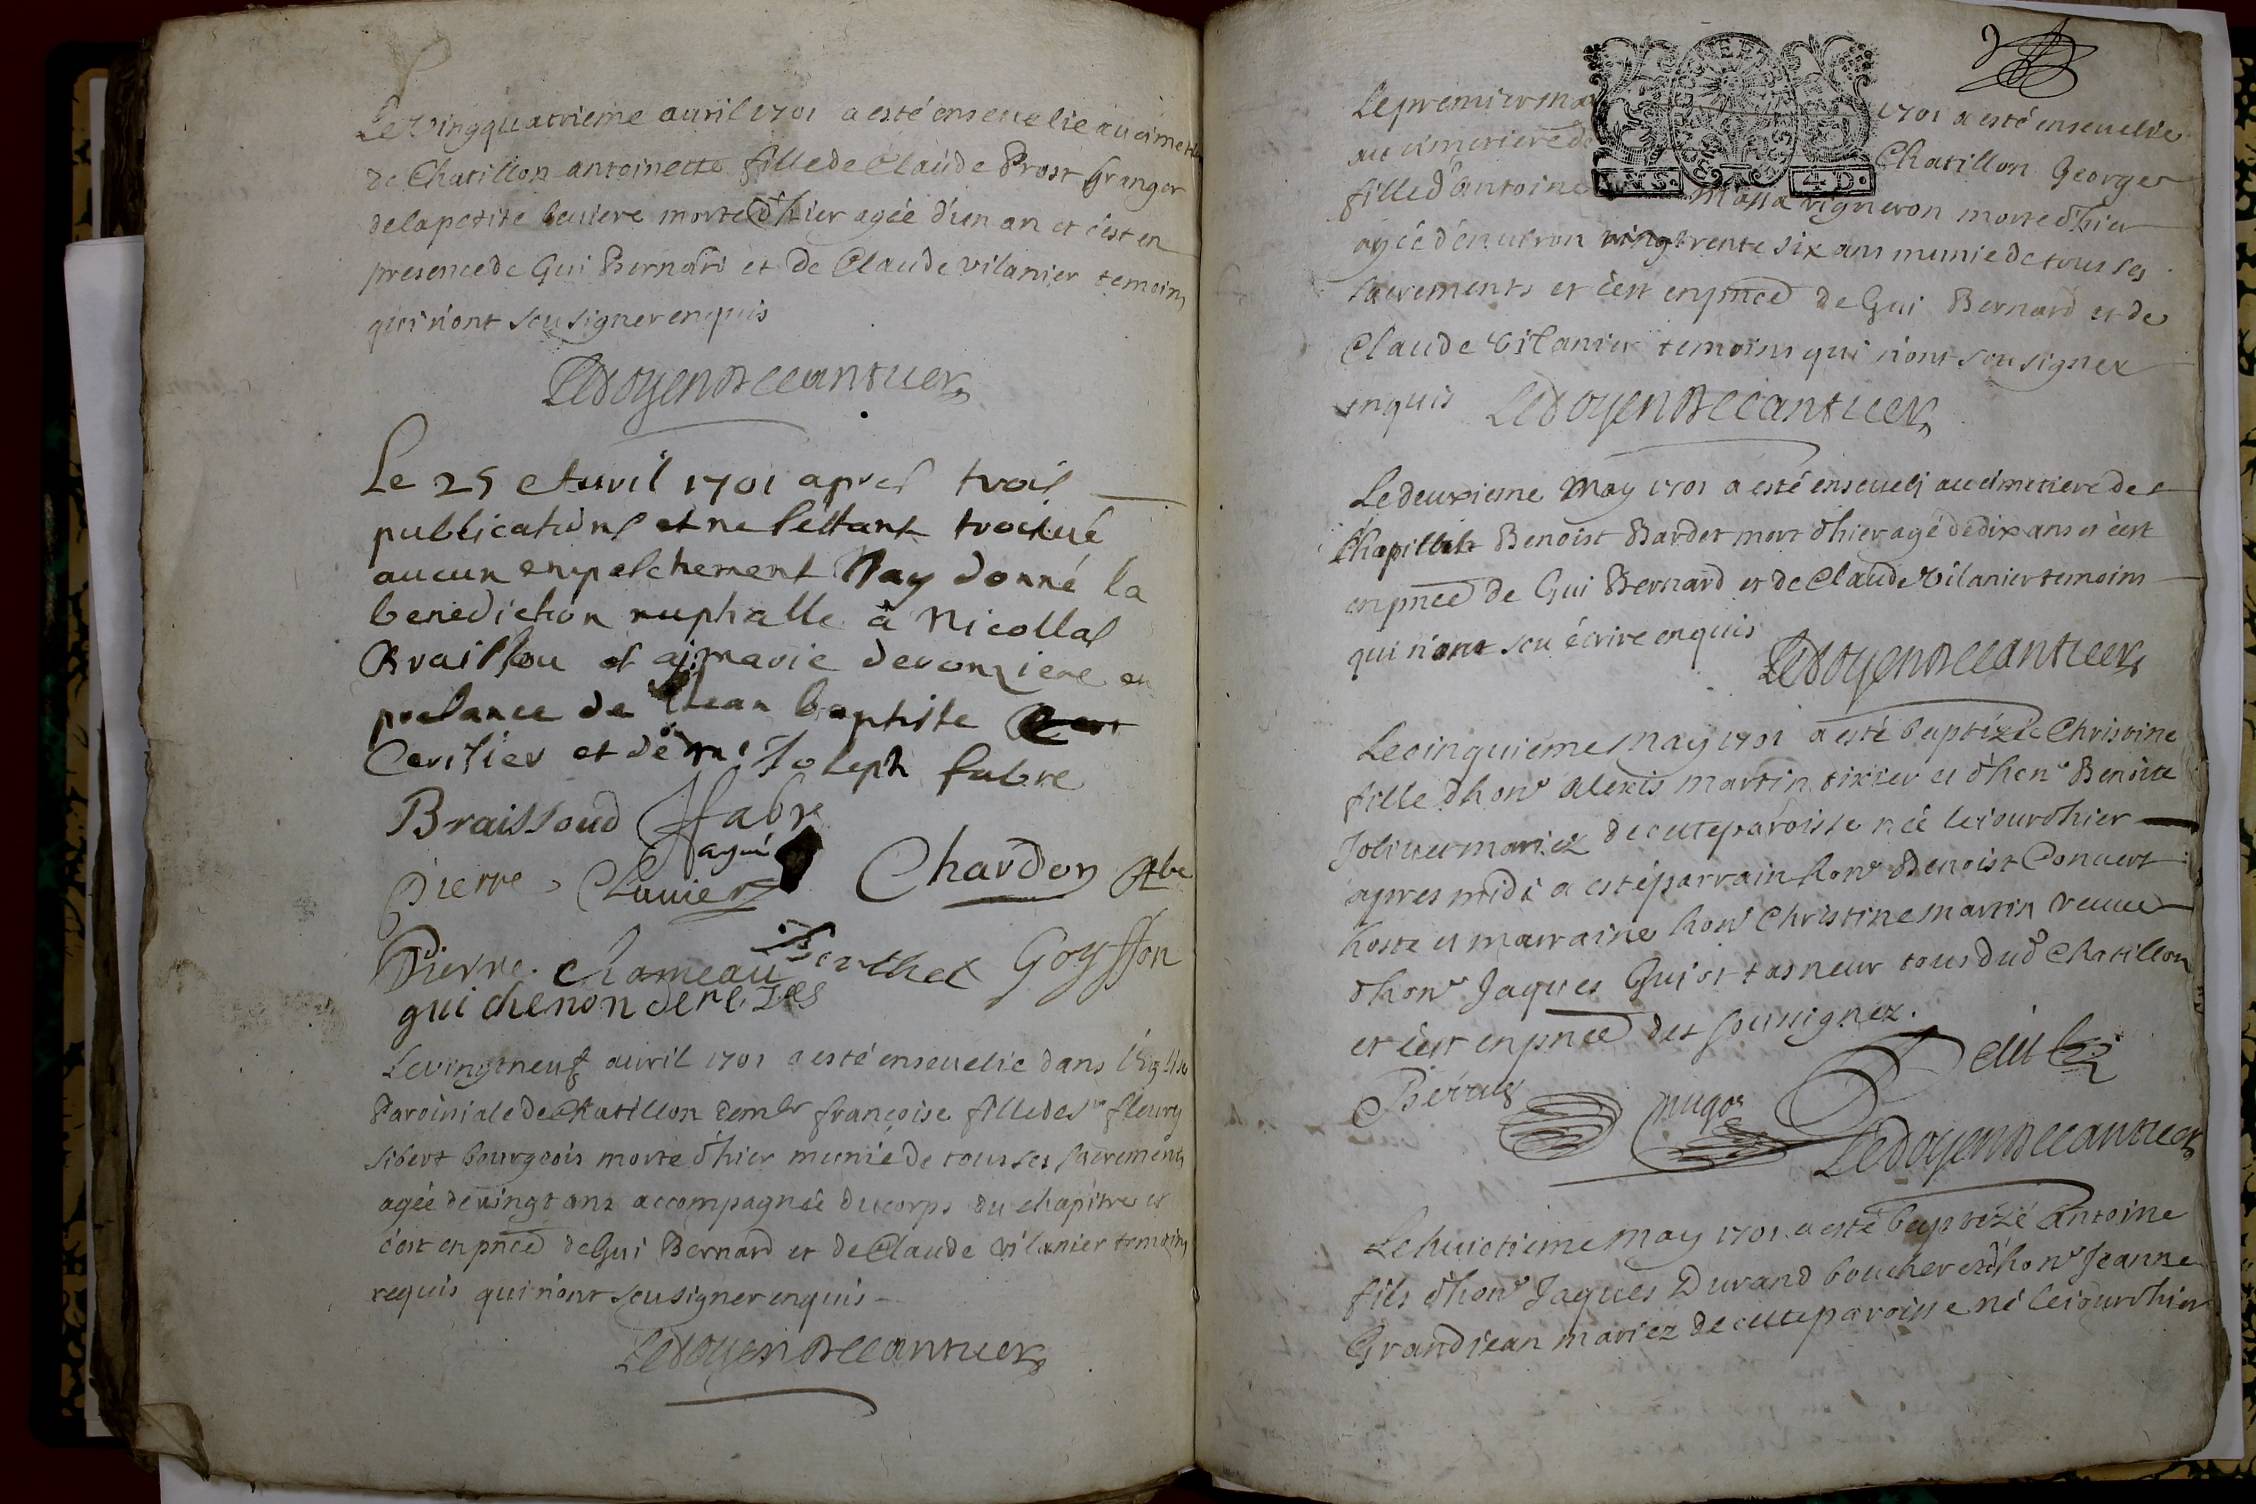 Le vingquatrieme auril 1701 a esté enseuelie au cimet
de Chatillon antoinette fille de Claude Prost granger
de la petite morte d'hier agée d'un an et c'est en
presence de Gui Bernard et de Claude vilanier temoins
qui n'ont seu signer enquis
Ledoyen
Le 25 Auril 1701 apres trois
publications et ne s'estant trouué
aucun empeschement Jay donné la
benediction nuptialle a Nicollas
Braissou et marie en
presance de Jean baptiste
et de Joseph fabre
Braissoud fabre
Pierre Chardon
Pierre chameau berthet Goyffon
guichenon
Le vingtneuf auril 1701 a esté enseuelie dans l'Eglise
Paroissiale de Chatillon demlle françoise fille de sr fleury
Sibert bourgeois morte d'hier munie de tous ses sacrements
agée de vingt ans accompagnée du corps du chapitre et
c'est en pnce de Gui Bernard et de Claude vilanier temoins
requis qui n'ont seu signer enquis
Ledoyen
Le premier may 1701 a esté enseuelie
au cimetiere de Chatillon George
fille d'antoine vigneron morte d'hier
agée d'enuiron trente six ans munie de tous ses
sacrements et c'est en pnce de Gui Bernard et de
Claude vilanier temoins qui n'ont seu signer
enquis Ledoyen
Le deuxieme May 1701 a esté enseueli au cimetiere de
Benoist Bardet mort d'hier agé de dix ans et c'est
en pnce de Gui Bernard et de Claude vilanier temoins
qui n'ont seu écrire enquis
Ledoyen
Le cinquieme May 1701 a esté baptizée Christine
fille d'honr Alexis Martin tixier et d'honr Benoite
Joliuet mariez de cette paroisse née le jour d'hier
apres midi a esté parrain honr Benoist Conuert
hoste et marraine honr Christine Martin veuue
d'honr Jaques Guiot tasneur tous dud Chatillon
et c'est en pnce des soussignez.
Ledoyen
Le huictieme May 1701 a esté baptizé Antoine
fils d'honr Jaques Durand boucher et d'honr Jeanne
Grandjean mariez de cette paroisse né le jour d'hier